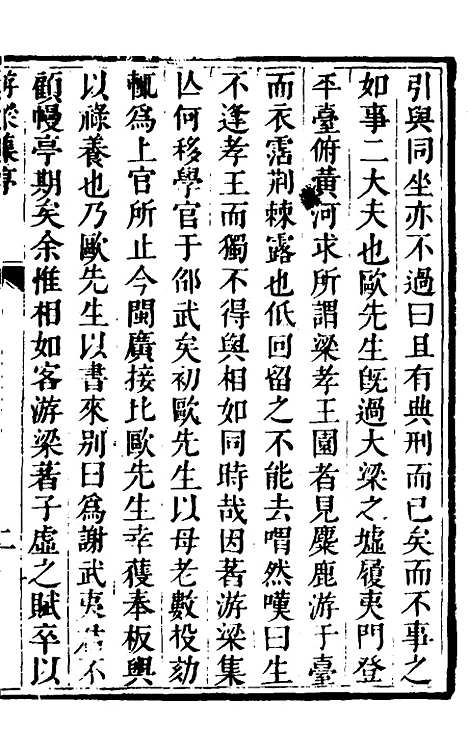 引與同坐亦不過曰且有典刑而已矣而不事之
如事二大夫也歐先生旣過大梁之墟履夷門登
平臺俯黃河求所謂梁孝王園者見麋鹿游于臺
而衣霑荆棘露也低回留之不能去喟然嘆曰生
不逢孝王而獨不得與相如同時哉因著游梁集
亾何移學官于邵武矣初歐先生以母老數投劾
輒爲上官所止今閩廣接比歐先生幸獲奉板輿
以祿養也乃歐先生以書來别曰爲謝武夷君不
顧幔亭期矣余惟相如客游梁著子虛之賦卒以
游梁集序
二